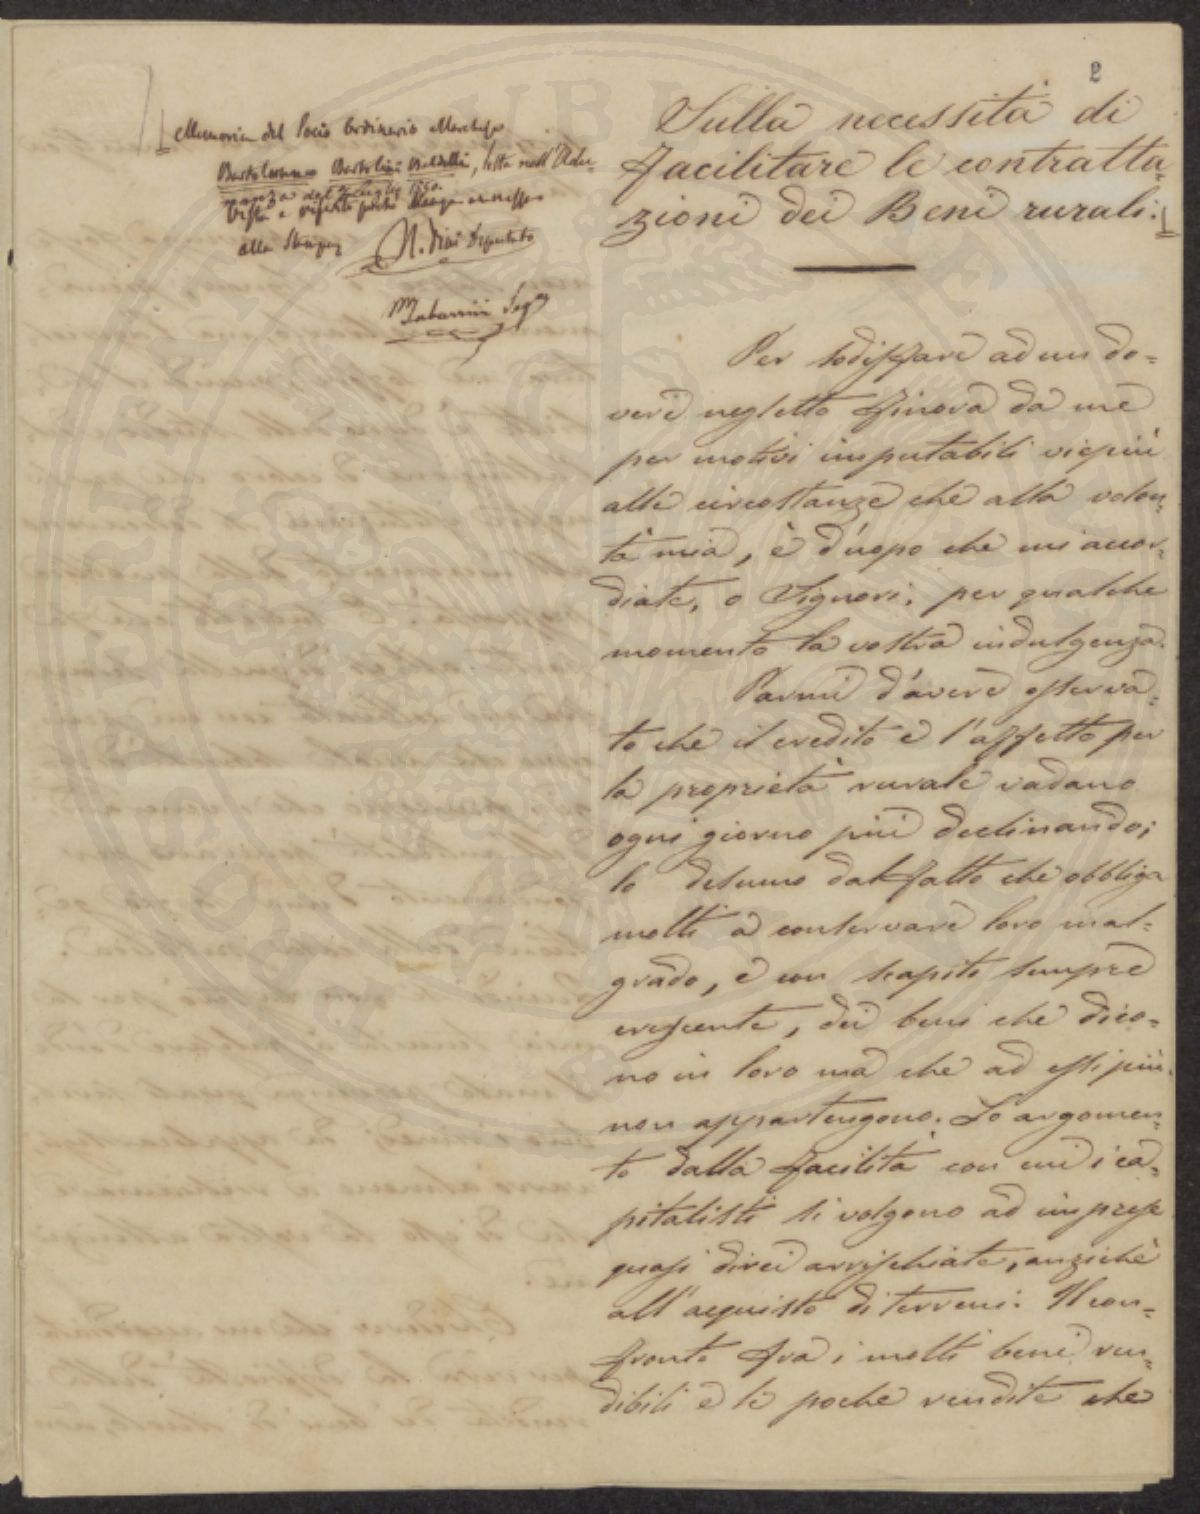 2
Sulla necessità di
facilitare le contratta-
zioni dei Beni rurali.
Memoria del Socio Ordinario Marchese
Bartolommeo Bartolini Baldelli, letta nell'Adu-
nanza del 7 Luglio 1850.
Vista e
alla Stampa
Deputato
Tabarrini Segr
Per sodisfare ad un do-
vere negletto finora da me
per motivi imputabili viepiù
alle circostanze che alla volon-
tà mia, è d'uopo che mi accor-
diate, o Signori, per qualche
momento la vostra indulgenza.
Parmi d'avere osserva-
to che il credito e l'affetto per
la proprietà rurale vadano
ogni giorno più declinando;
lo desumo dal fatto che obbliga
molti a conservare loro mal-
grado, e con scapito sempre
crescente, dei beni che dico-
no in loro ma che ad essi più
non appartengono. Lo argomen-
to dalla facilità con cui i ca-
pitalisti si volgono ad imprese
quasi direi arrischiate, anzichè
all'acquisto di terreni. Il con-
fronto fra i molti beni ven-
dibili e le poche vendite che